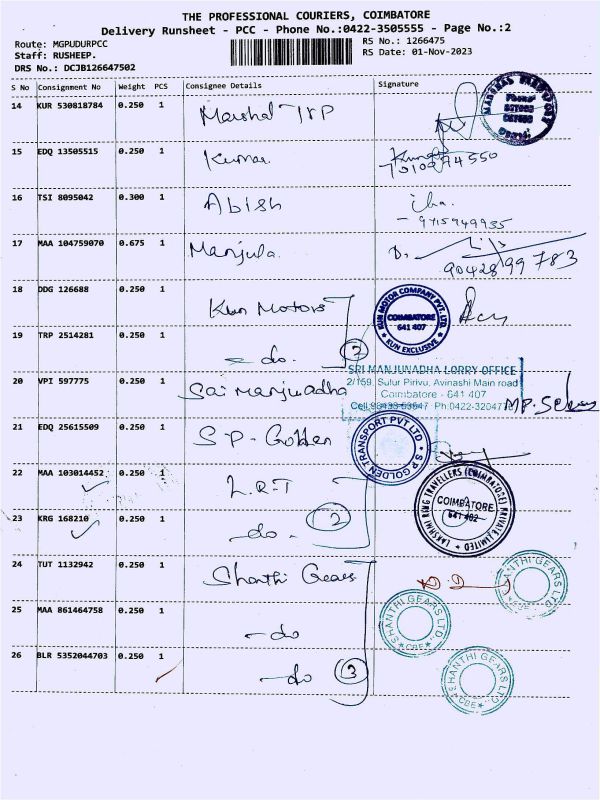 THE PROFESSIONAL COURIERS, COIMBATORE
Delivery Runsheet - PCC - Phone No.:0422-3505555 - Page No.:2
Route: MGPUDURPCC
RS No.: 1266475
Staff: RUSHEEP.
RS Date: 01-Nov-2023
DRS No.: DCJB126647502
S No Consignment No Weight PCS Consignee Details Signature
14 KUR 530818784 0.250 1 Marshal Trp
15 EDQ 13505515 0.250 1 Kumar
16 TSI 8095042 0.300 1 Abish
9715949935
17 MAA 104759070 0.675 1 Manjula
9042899783
18 DDG 126688 0.250 1 Kun Motors
KUN MOTOR COMPANY PVT. LTD.
COIMBATORE
641 407
KUN EXCLUSIVE
19 TRP 2514281 0.250 1 - do. 2
20 VPI 597775 0.250 1 Sai Manjunadha
SRI MANJUNADHA LORRY OFFICE
2/159, Sulur Pirivu, Avinashi Main road
Coimbatore - 641 407
Ph:0422-320477
21 EDQ 25615509 0.250 1 S P - Golden
S P GOLDEN TRANSPORT PVT LTD
22 MAA 103014452 0.250 1 L.R.T
LAKSHMI RING TRAVELLERS (COIMBATORE) PRIVATE LIMITED
COIMBATORE
641 402
23 KRG 168210 0.250 1 - do. 2
24 TUT 1132942 0.250 1 Shanthi Gears
SHANTHI GEARS LTD.
CBE
25 MAA 861464758 0.250 1 - do
SHANTHI GEARS LTD.
CBE
26 BLR 5352044703 0.250 1 - do 3
SHANTHI GEARS LTD.
CBE